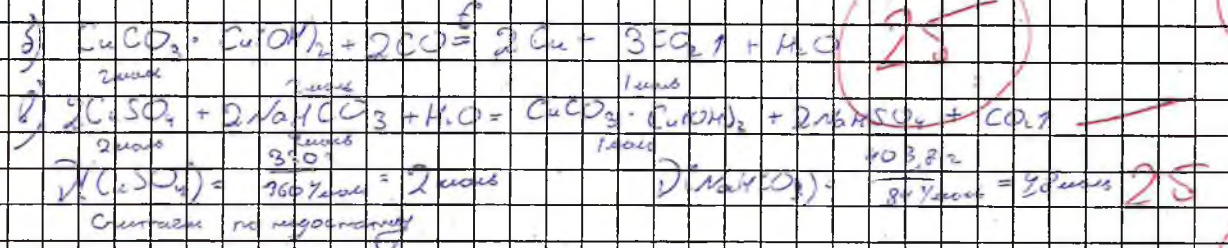 б) CuCO₃ · Cu(OH)₂ + 2CO =t° 2Cu + 3CO₂↑ + H₂O
25
2 моль 2 моль 1 моль
в) 2CuSO₄ + 2NaHCO₃ + H₂O = CuCO₃ · Cu(OH)₂ + 2NaHSO₄ + CO₂↑
2 моль 2 моль 1 моль
ν(CuSO₄) = 320 / 160 г/моль = 2 моль ν(NaHCO₃) = 403,2 г / 84 г/моль = 4,8 моль 25
Считаем по недостатку